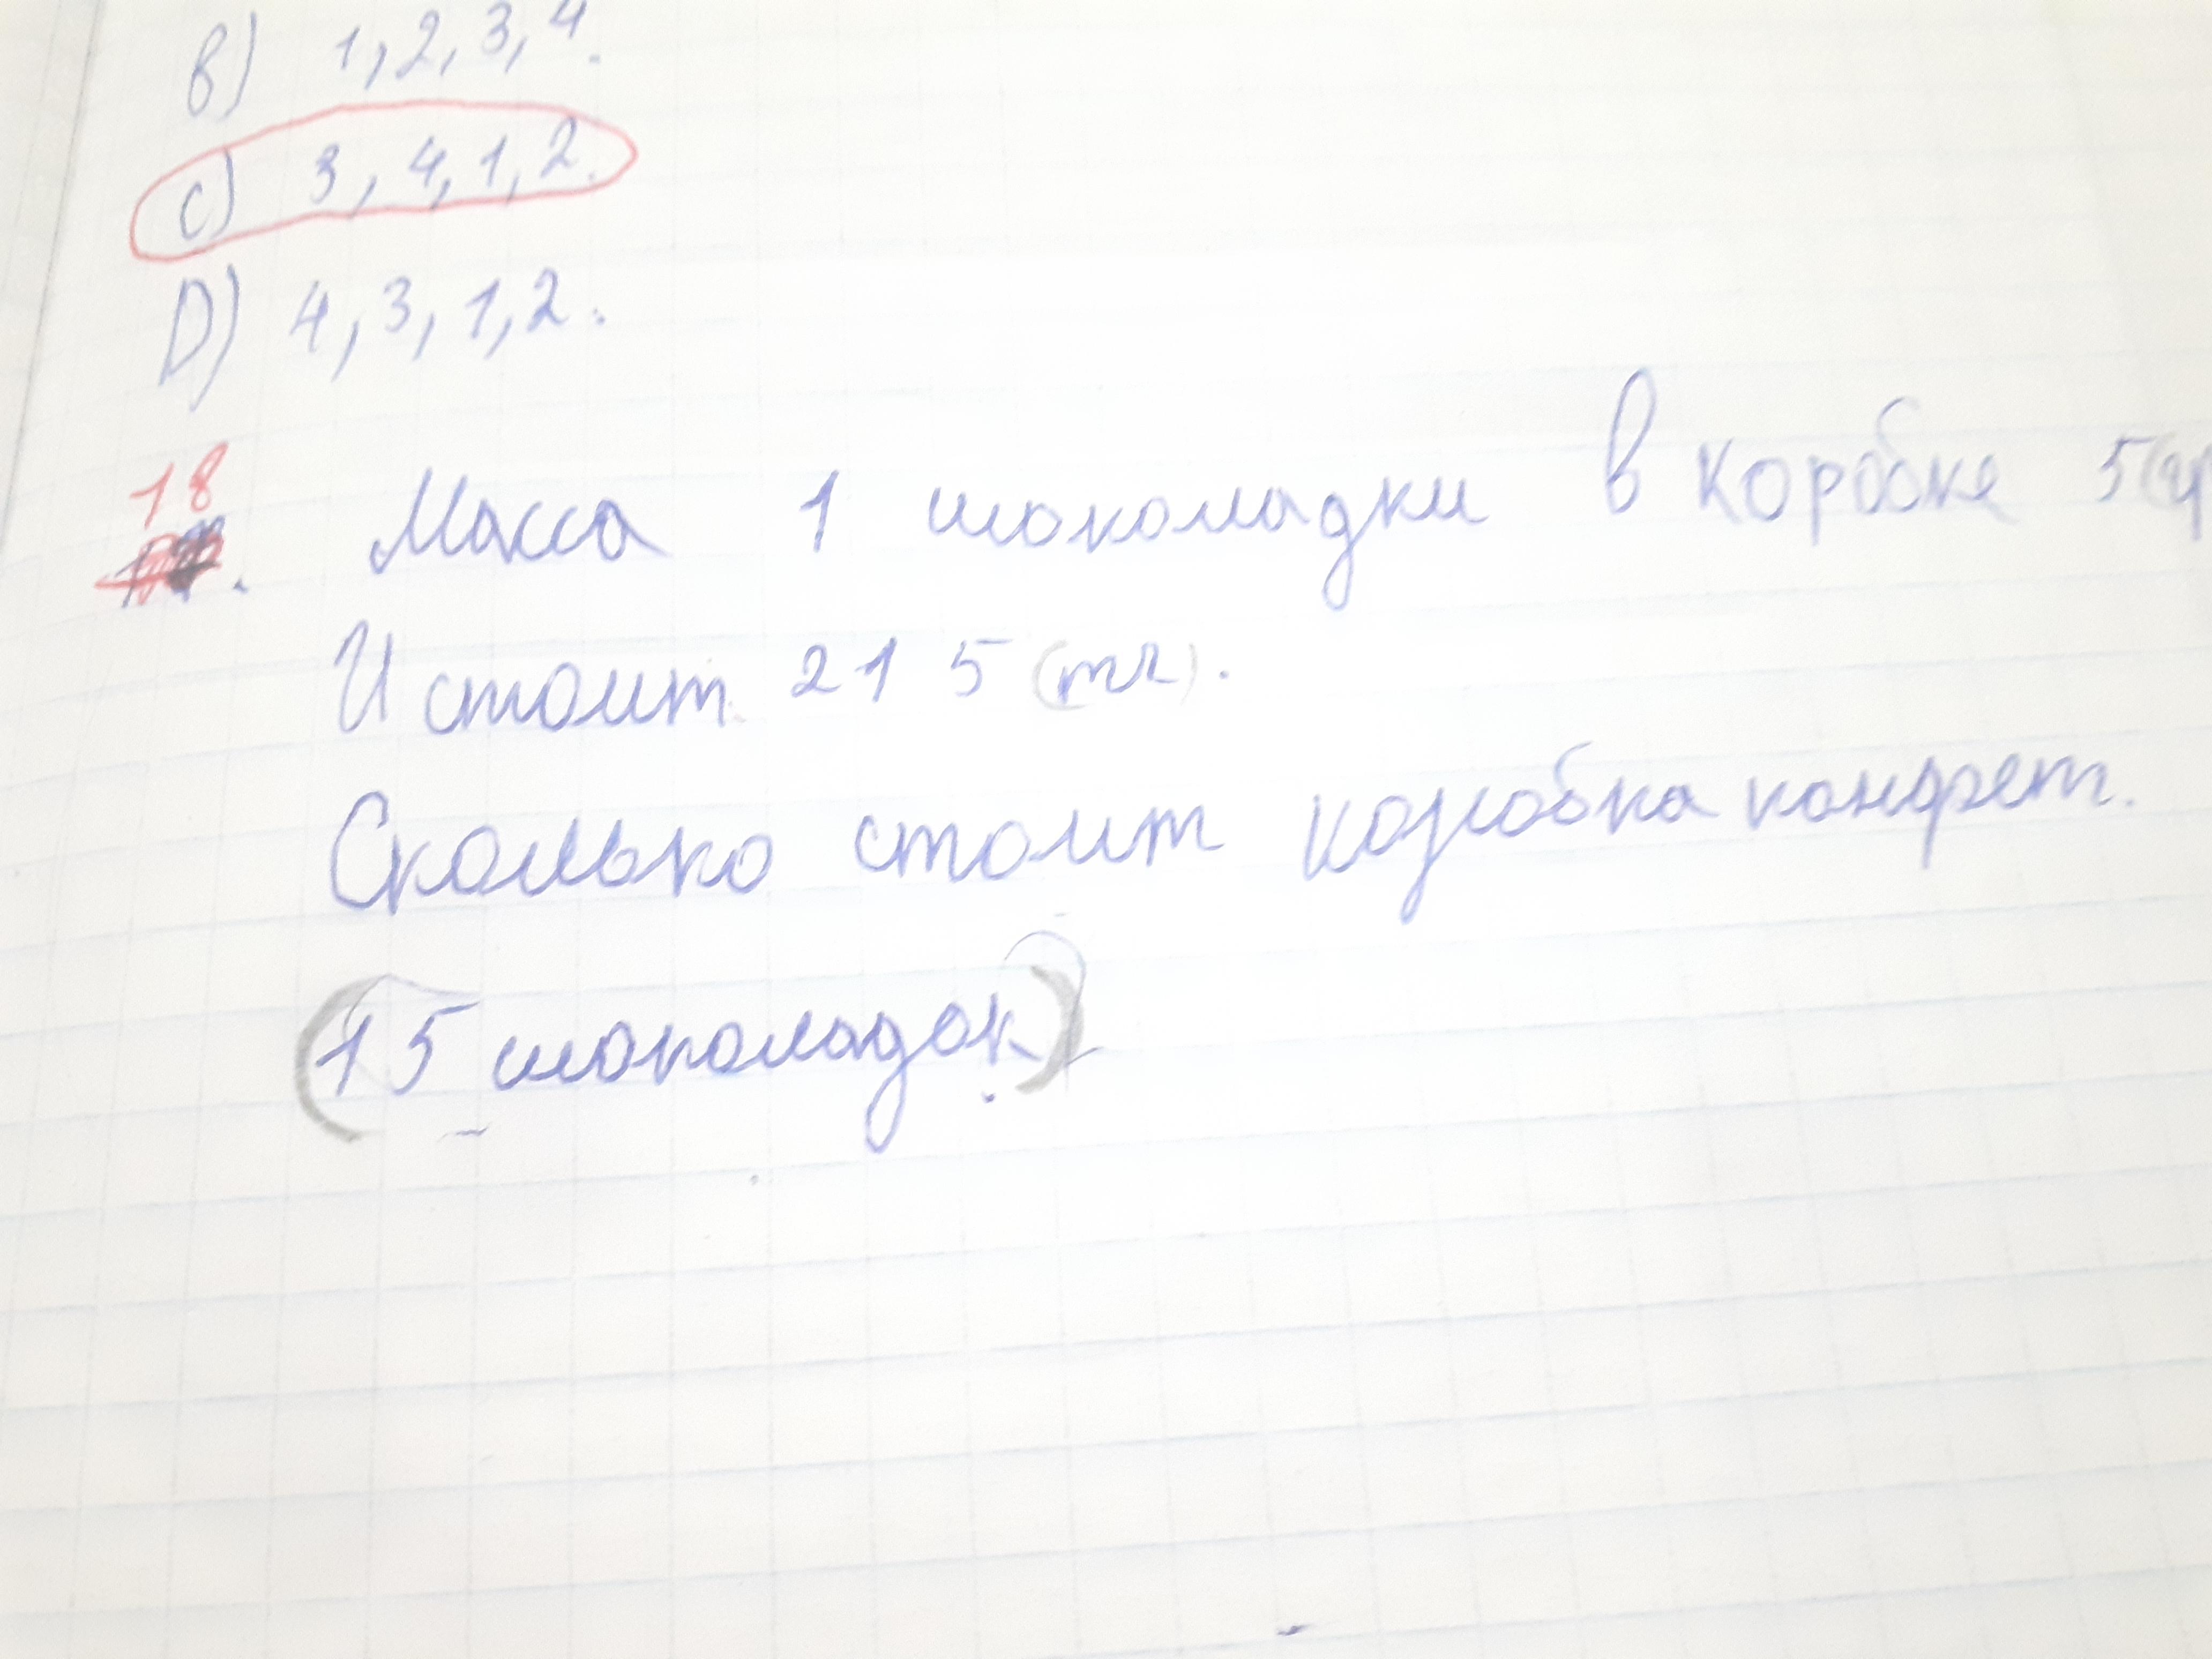 B) 1, 2, 3, 4.
C) 3, 4, 1, 2.
D) 4, 3, 1, 2.
18. Масса 1 шоколадки в коробке 5(г
И стоит 215 (тг).
Сколько стоит коробка конфет.
(15 шоколадок).